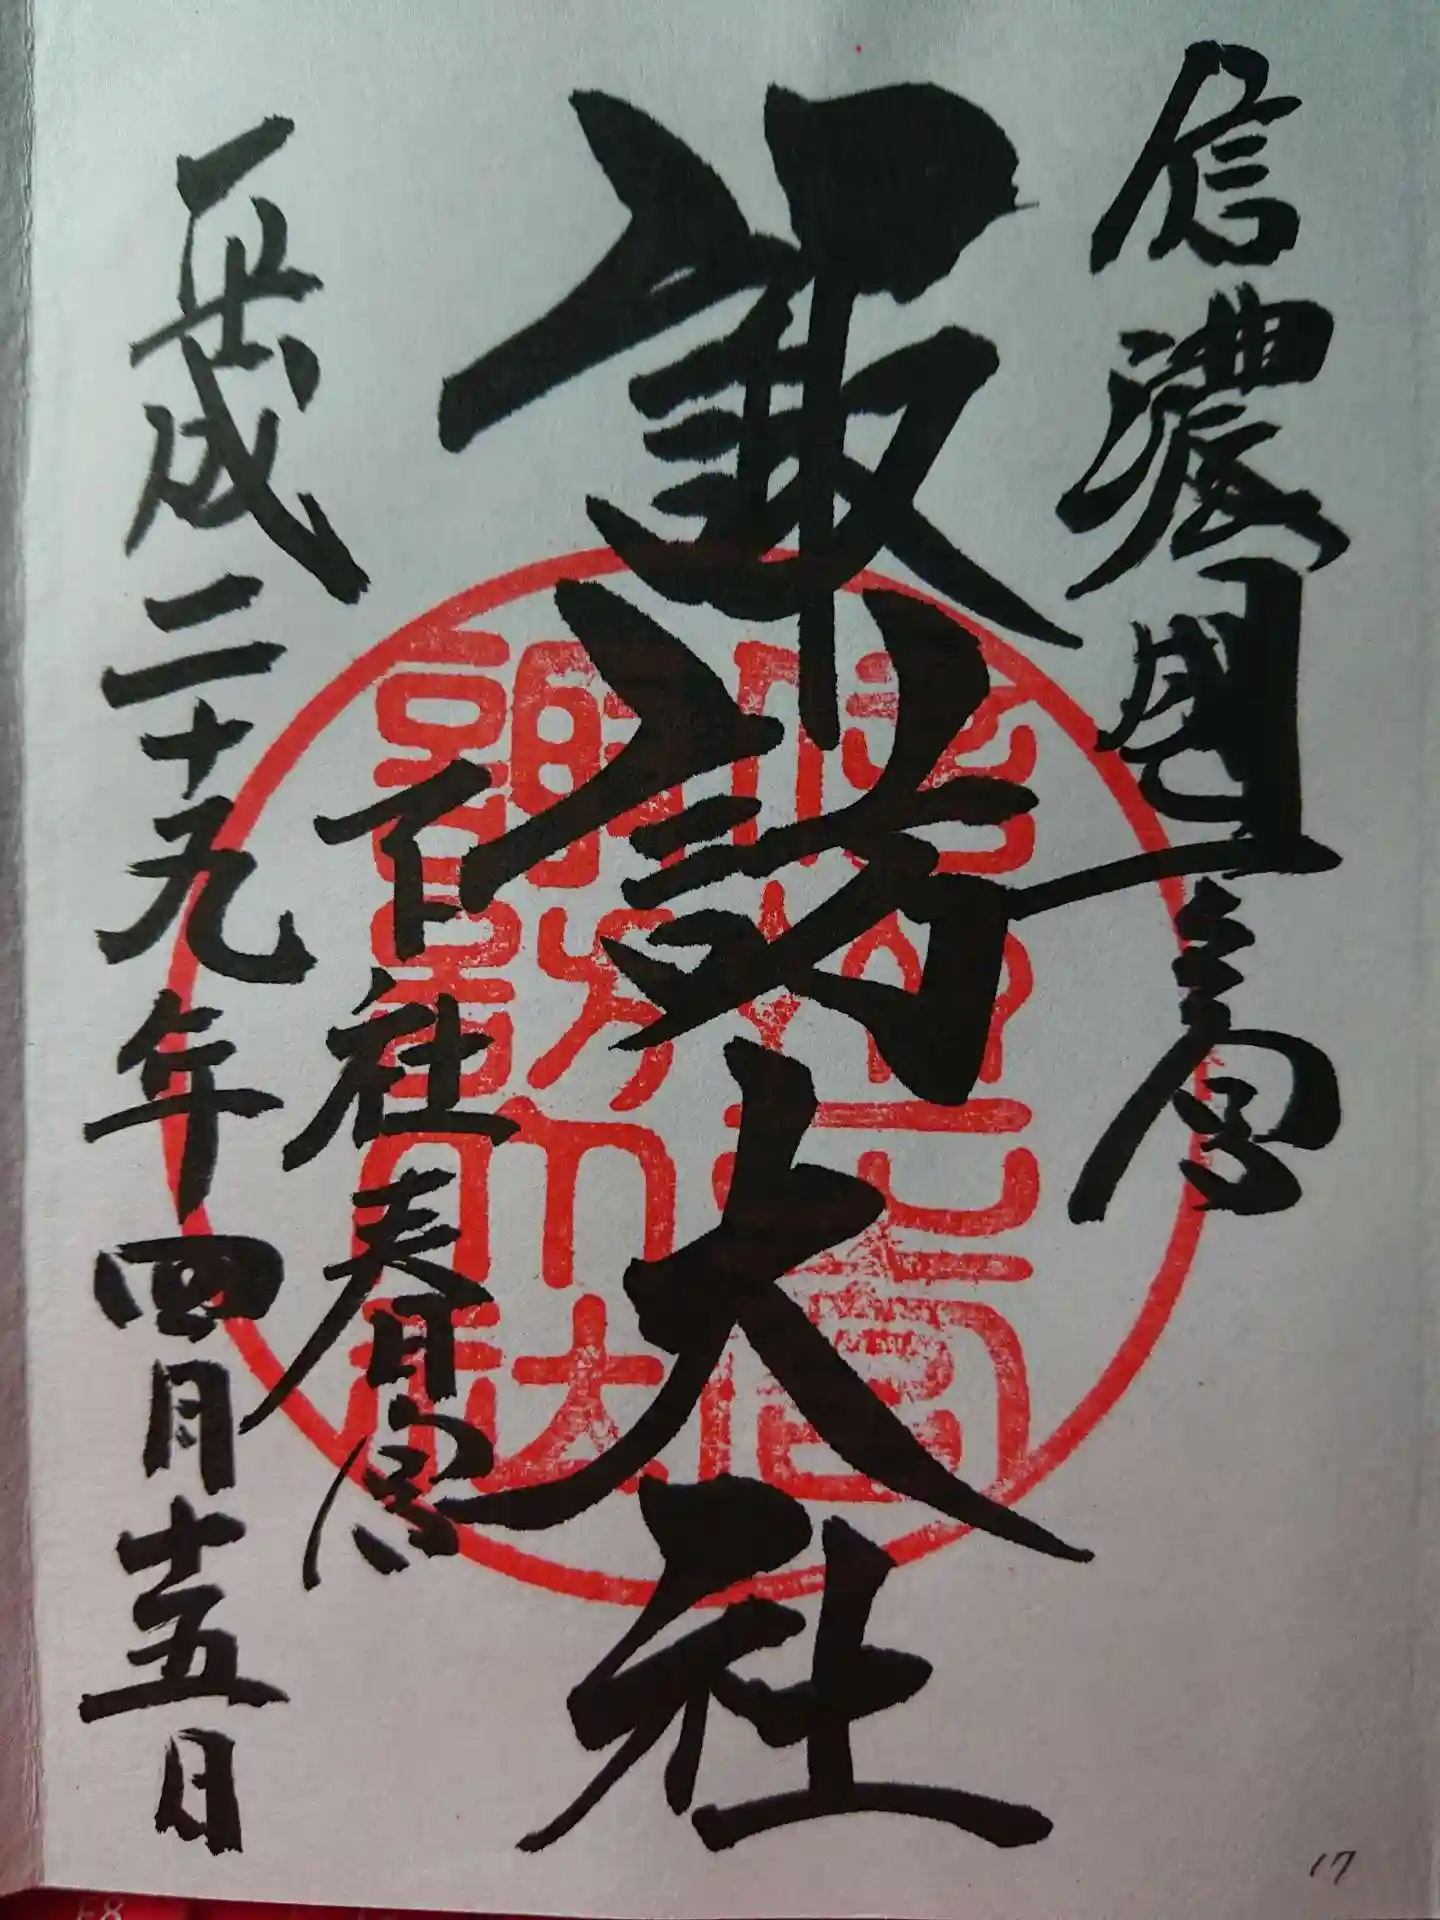 信濃國一之宮
諏訪大社
下社春宮
平成二十九年四月十五日
17
F8